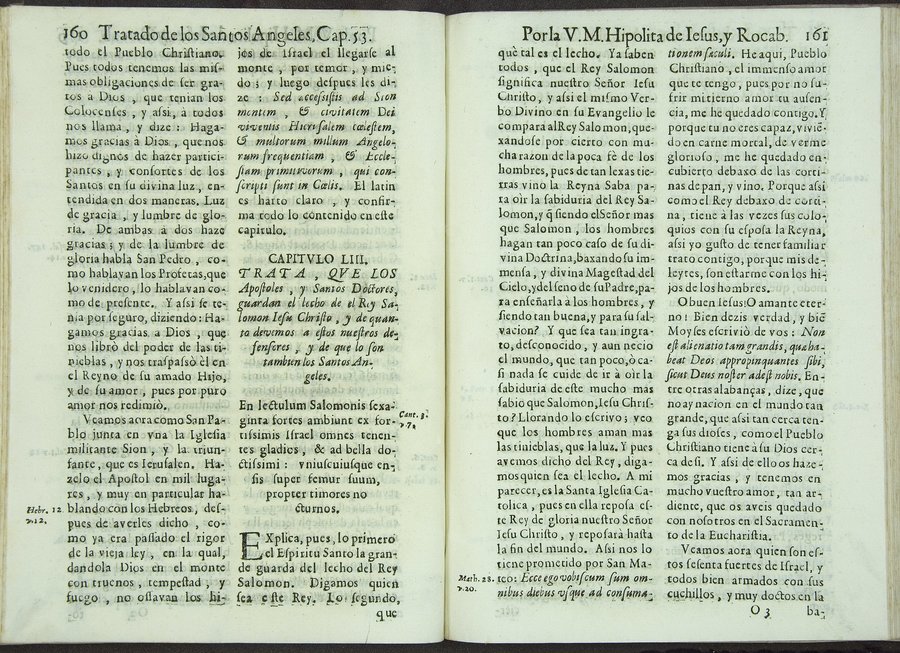 160 Tratado de los Santos Angeles, Cap. 53.
todo el Pueblo Christiano.
Pues todos tenemos las mis-
mas obligaciones de ser gra-
tos a Dios, que tenian los
Colocenses, y assi, à todos
nos llama, y dize: Haga-
mos gracias à Dios, que nos
hizo dignos de hazer partici-
pantes, y consortes de los
Santos en su divina luz, en-
tendida en dos maneras. Luz
de gracia, y lumbre de glo-
ria. De ambas a dos haze
gracias; y de la lumbre de
gloria habla San Pedro, co-
mo hablavan los Profetas, que
lo venidero, lo hablavan co-
mo de presente. Y assi se te-
nia por seguro, diziendo: Ha-
gamos gracias à Dios, que
nos librò del poder de las ti-
nieblas, y nos traspassò èl en
el Reyno de su amado Hijo,
y de su amor; pues por puro
amor nos redimiò.
Veamos aora como San Pa-
blo junta en vna la Iglesia
militante Sion, y la triun-
fante, que es Ierusalen. Ha-
zelo el Apostol en mil luga-
res, y muy en particular ha-
Hebr. 12
v. 12.
blando con los Hebreos, des-
pues de averles dicho, co-
mo ya era passado el rigor
de la vieja ley, en la qual,
dandola Dios en el monte
con truenos, tempestad, y
fuego, no osavan los hi-
jos de Israel el llegarse al
monte, por temor, y mie-
do; y luego despues les di-
ze: Sed accessistis ad Sion
montem, & civitatem Dei
viventis Hierusalem cœlestem,
& multorum millum Angelo-
rum frequentiam, & Eccle-
siam primitivorum, qui con-
scripti sunt in Cœlis. El latin
es harto claro, y confir-
ma todo lo contenido en este
capitulo.
CAPITVLO LIII.
TRATA, QVE LOS
Apostoles, y Santos Doctores,
guardan el lecho de el Rey Sa-
lomon Iesu Christo, y de quan-
to devemos a estos nuestros de-
fensores, y de que lo son
tambien los Santos An-
geles.
En lectulum Salomonis sexa-
Cant. 3.
v. 7.
ginta fortes ambiunt ex for-
tissimis Israel omnes tenen-
tes gladies, & ad bella do-
ctissimi: vniuscuiusque en-
sis super femur suum,
propter timores no
cturnos.
EXplica, pues, lo primero
el Espiritu Santo la gran-
de guarda del lecho del Rey
Salomon. Digamos quien
sea este Rey. Lo segundo,
que
Por la V. M. Hipolita de Iesus, y Rocab. 161
què tal es el lecho. Ya saben
todos, que el Rey Salomon
significa nuestro Señor Iesu
Christo, y assi el mismo Ver-
bo Divino en su Evangelio le
compara al Rey Salomon, que-
xandose por cierto con mu-
cha razon de la poca fè de los
hombres, pues de tan lexas tie-
rras vino la Reyna Saba pa-
ra oìr la sabiduria del Rey Sa-
lomon, y q̃ siendo el Señor mas
que Salomon, los hombres
hagan tan poco caso de su di-
vina Doctrina, baxando su im-
mensa, y divina Magestad del
Cielo, y del seno de su Padre, pa-
ra enseñarla à los hombres, y
siendo tan buena, y para su sal-
vacion? Y que sea tan ingra-
to, desconocido, y aun necio
el mundo, que tan poco, ò ca-
si nada se cuide de ir à oìr la
sabiduria de este mucho mas
sabio que Salomon, Iesu Chris-
to? Llorando lo escrivo; veo
que los hombres aman mas
las tinieblas, que la luz. Y pues
avemos dicho del Rey, diga-
mos quien sea el lecho. A mi
parecer, es la Santa Iglesia Ca-
tolica, pues en ella reposa es-
te Rey de gloria nuestro Señor
Iesu Christo, y reposarà hasta
la fin del mundo. Assi nos lo
tiene prometido por San Ma-
Math. 28.
v. 20.
teo: Ecce ego vobiscum sum om-
nibus diebus vsque ad consuma-
tionem sæculi. He aqui, Pueblo
Christiano, el immenso amor
que te tengo, pues por no su-
frir mi tierno amor tu ausen-
cia, me he quedado contigo. Y
porque tu no eres capaz, viviẽ-
do en carne mortal, de verme
glorioso, me he quedado en-
cubierto debaxo de las corti-
nas de pan, y vino. Porque assi
como el Rey debaxo de corti-
na, tiene à las vezes sus colo-
quios con su esposa la Reyna,
assi yo gusto de tener familiar
trato contigo, porque mis de-
leytes, son estarme con los hi-
jos de los hombres.
O buen Iesus! O amante eter-
no! Bien dezis verdad, y biẽ
Moyses escriviò de vos: Non
est alienatio tam grandis, quæ ha-
beat Deos appropinquantes sibi,
sicut Deus noster adest nobis. En-
tre otras alabanças, dize, que
no ay nacion en el mundo tan
grande, que assi tan cerca ten-
ga sus dioses, como el Pueblo
Christiano tiene à su Dios cer-
ca de si. Y assi de ello os haze-
mos gracias, y tenemos en
mucho vuestro amor, tan ar-
diente, que os aveis quedado
con nosotros en el Sacramen-
to de la Eucharistia.
Veamos aora quien son es-
tos sesenta fuertes de Israel, y
todos bien armados con sus
cuchillos, y muy doctos en la
O 3 ba-